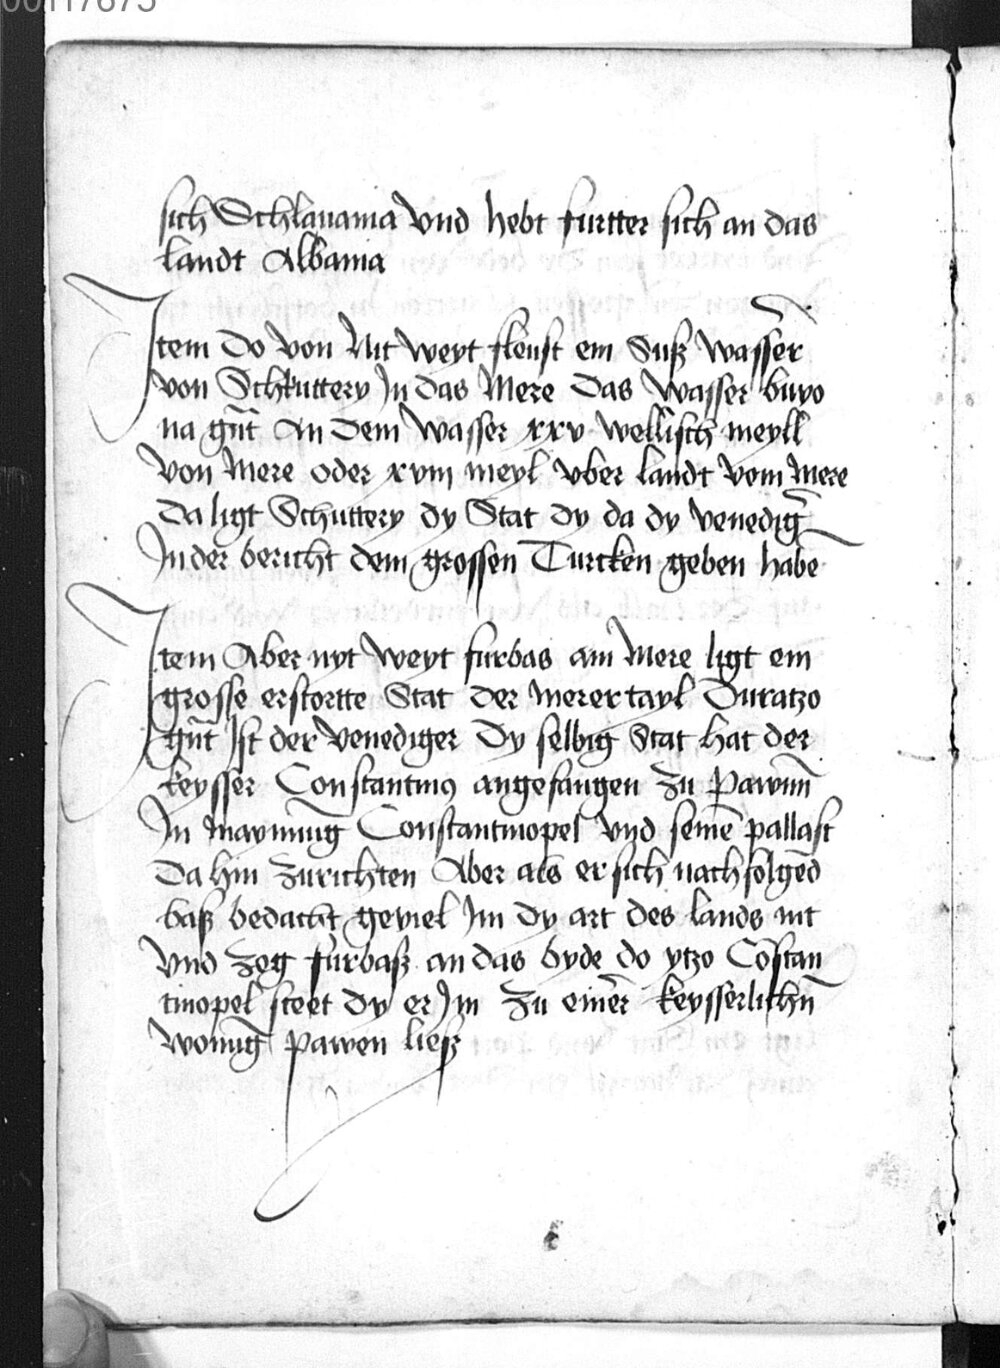 sich Schlauania Vnd hebt furtter sich an das
landt Albania
Item Do von Nit weyt fleust ein Suß wasser
von Schkuttery In das Mere Das wasser buyo
na gñt An Dem wasser xxv wellisch meyll
von Mere oder xviii meyl vber landt vom Mere
Da ligt Schuttery dy Stat dy da dy venedig̃
In der bericht dem grossen Turcken geben habe
Item Aber nyt weyt furbas am Mere ligt ein
grosse erstortte Stat der merer tayl Duratzo
gñt Ist der Venediger Dy selbig Stat hat der
keysser Constantinꝰ angefangen zu pawnñ
In maynung Constantinopel vnd seinē pallast
Da hin zurichten Aber als er sich nachfolgēd
baß bedacht geviel Im dy art des lands nit
Vnd zog furbaß an das byde do ytzo Cōstan
tinopel steet dy er Im zu einer keysserlichñ
wonug̃ pawen ließ